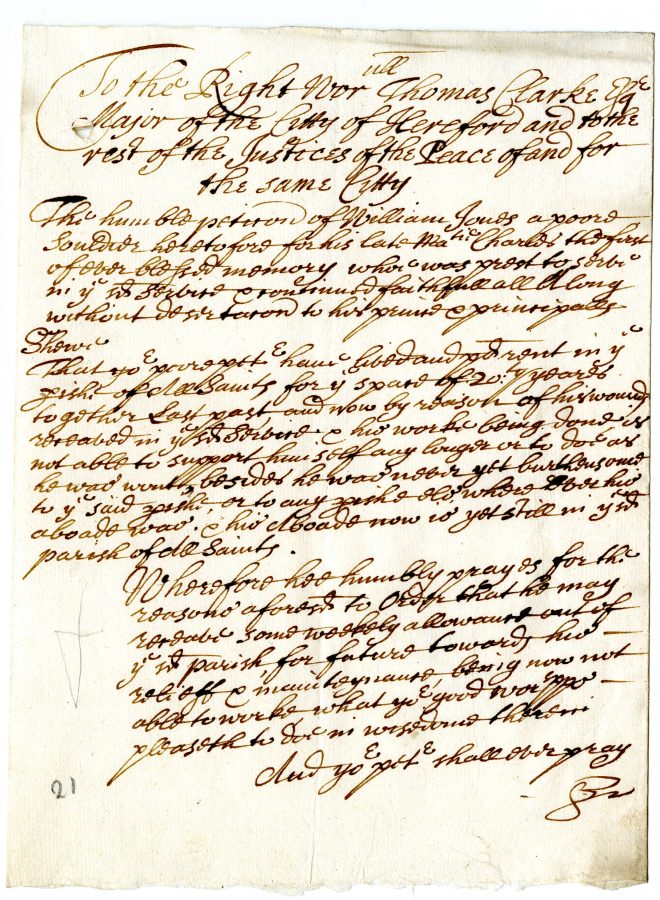 To the Right Wor ull Thomas Clarke Esqr
Major of the Citty of Hereford and to the
rest of the Justices of the Peace of and for
the same Citty
The humble peticon of William Jones a poore
Souldier heretofore for his late Matie Charles the first
of ever blessed memory whoe was prest to serve
in ye sd Service & continued faithfull all Along
without desertacon to his prince & principalls
Shewe
That yor poore petr have lived and pd rent in ye
pishe of All Saints for ye space of 20ty yeares
together Last past and now by reason of his wounds
receaved in ye sd Service & his worke being done is
not able to support himself any longer or to doe as
he was wont, besides he was never yet burthensome
to ye said pishe, or to any pishe els where Ever his
aboade was, & his Aboade now is yet still in ye sd
parish of All Saints.
Wherefore hee humbly prayes for the
reasons aforesd to Order that he may
receave some weekely allowance out of
ye sd parish, for future towards his
relieff & mainteynance, being now not
able to worke, what yor good worspps
pleaseth to doe in wisedome therein
And yor petr shall ever pray
&c
21